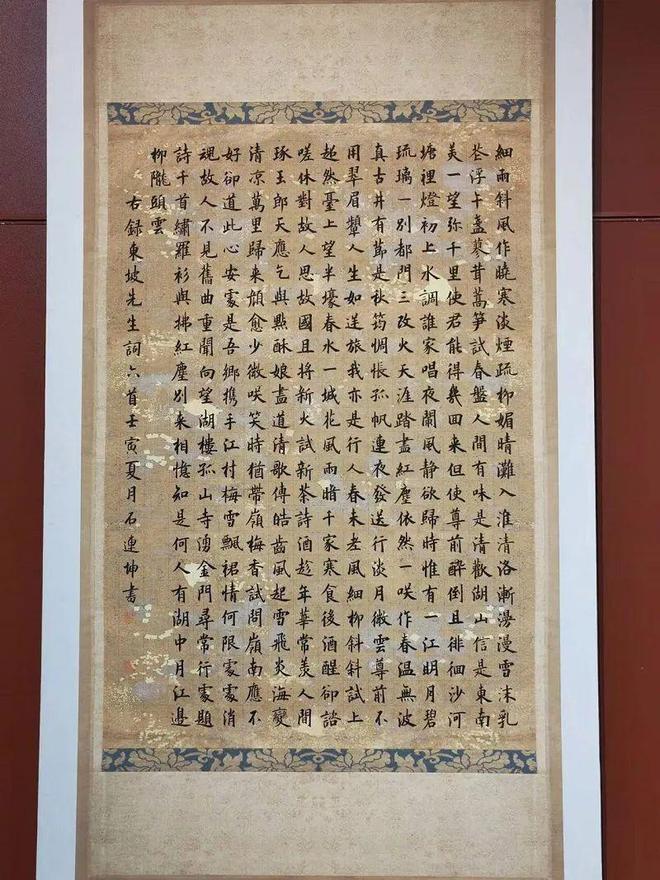 細雨斜風作曉寒淡煙疏柳媚晴灘入淮清洛漸漫漫雪沫乳
花浮午盞蓼茸蒿笋試春盤人間有味是清歡湖山信是東南
美一望弥千里使君能得幾回來但使尊前醉倒且徘徊沙河
塘裡燈初上水調誰家唱夜闌風静欲歸時惟有一江明月碧
琉璃一別都門三改火天涯踏盡紅塵依然一咲作春温無波
真古井有節是秋筠惆悵孤帆連夜發送行淡月微雲尊前不
用翠眉顰人生如逆旅我亦是行人春未老風細柳斜斜試上
超然臺上望半壕春水一城花風雨暗千家寒食後酒醒卻諮
嗟休對故人思故國且將新火試新茶詩酒趁年華常羨人間
琢玉郎天應乞與點酥娘盡道清歌傳皓齒風起雪飛炎海變
清涼萬里歸来顏愈少微咲笑時猶帶嶺梅香試問嶺南應不
好卻道此心安處是吾鄉携手江村梅雪飄裙情何限處處消
魂故人不見舊曲重聞向望湖樓孤山寺湧金門尋常行處題
詩千首繡羅衫與拂紅塵別来相憶知是何人有湖中月江邊
柳隴頭雲
右録東坡先生詞六首壬寅夏月石連坤書